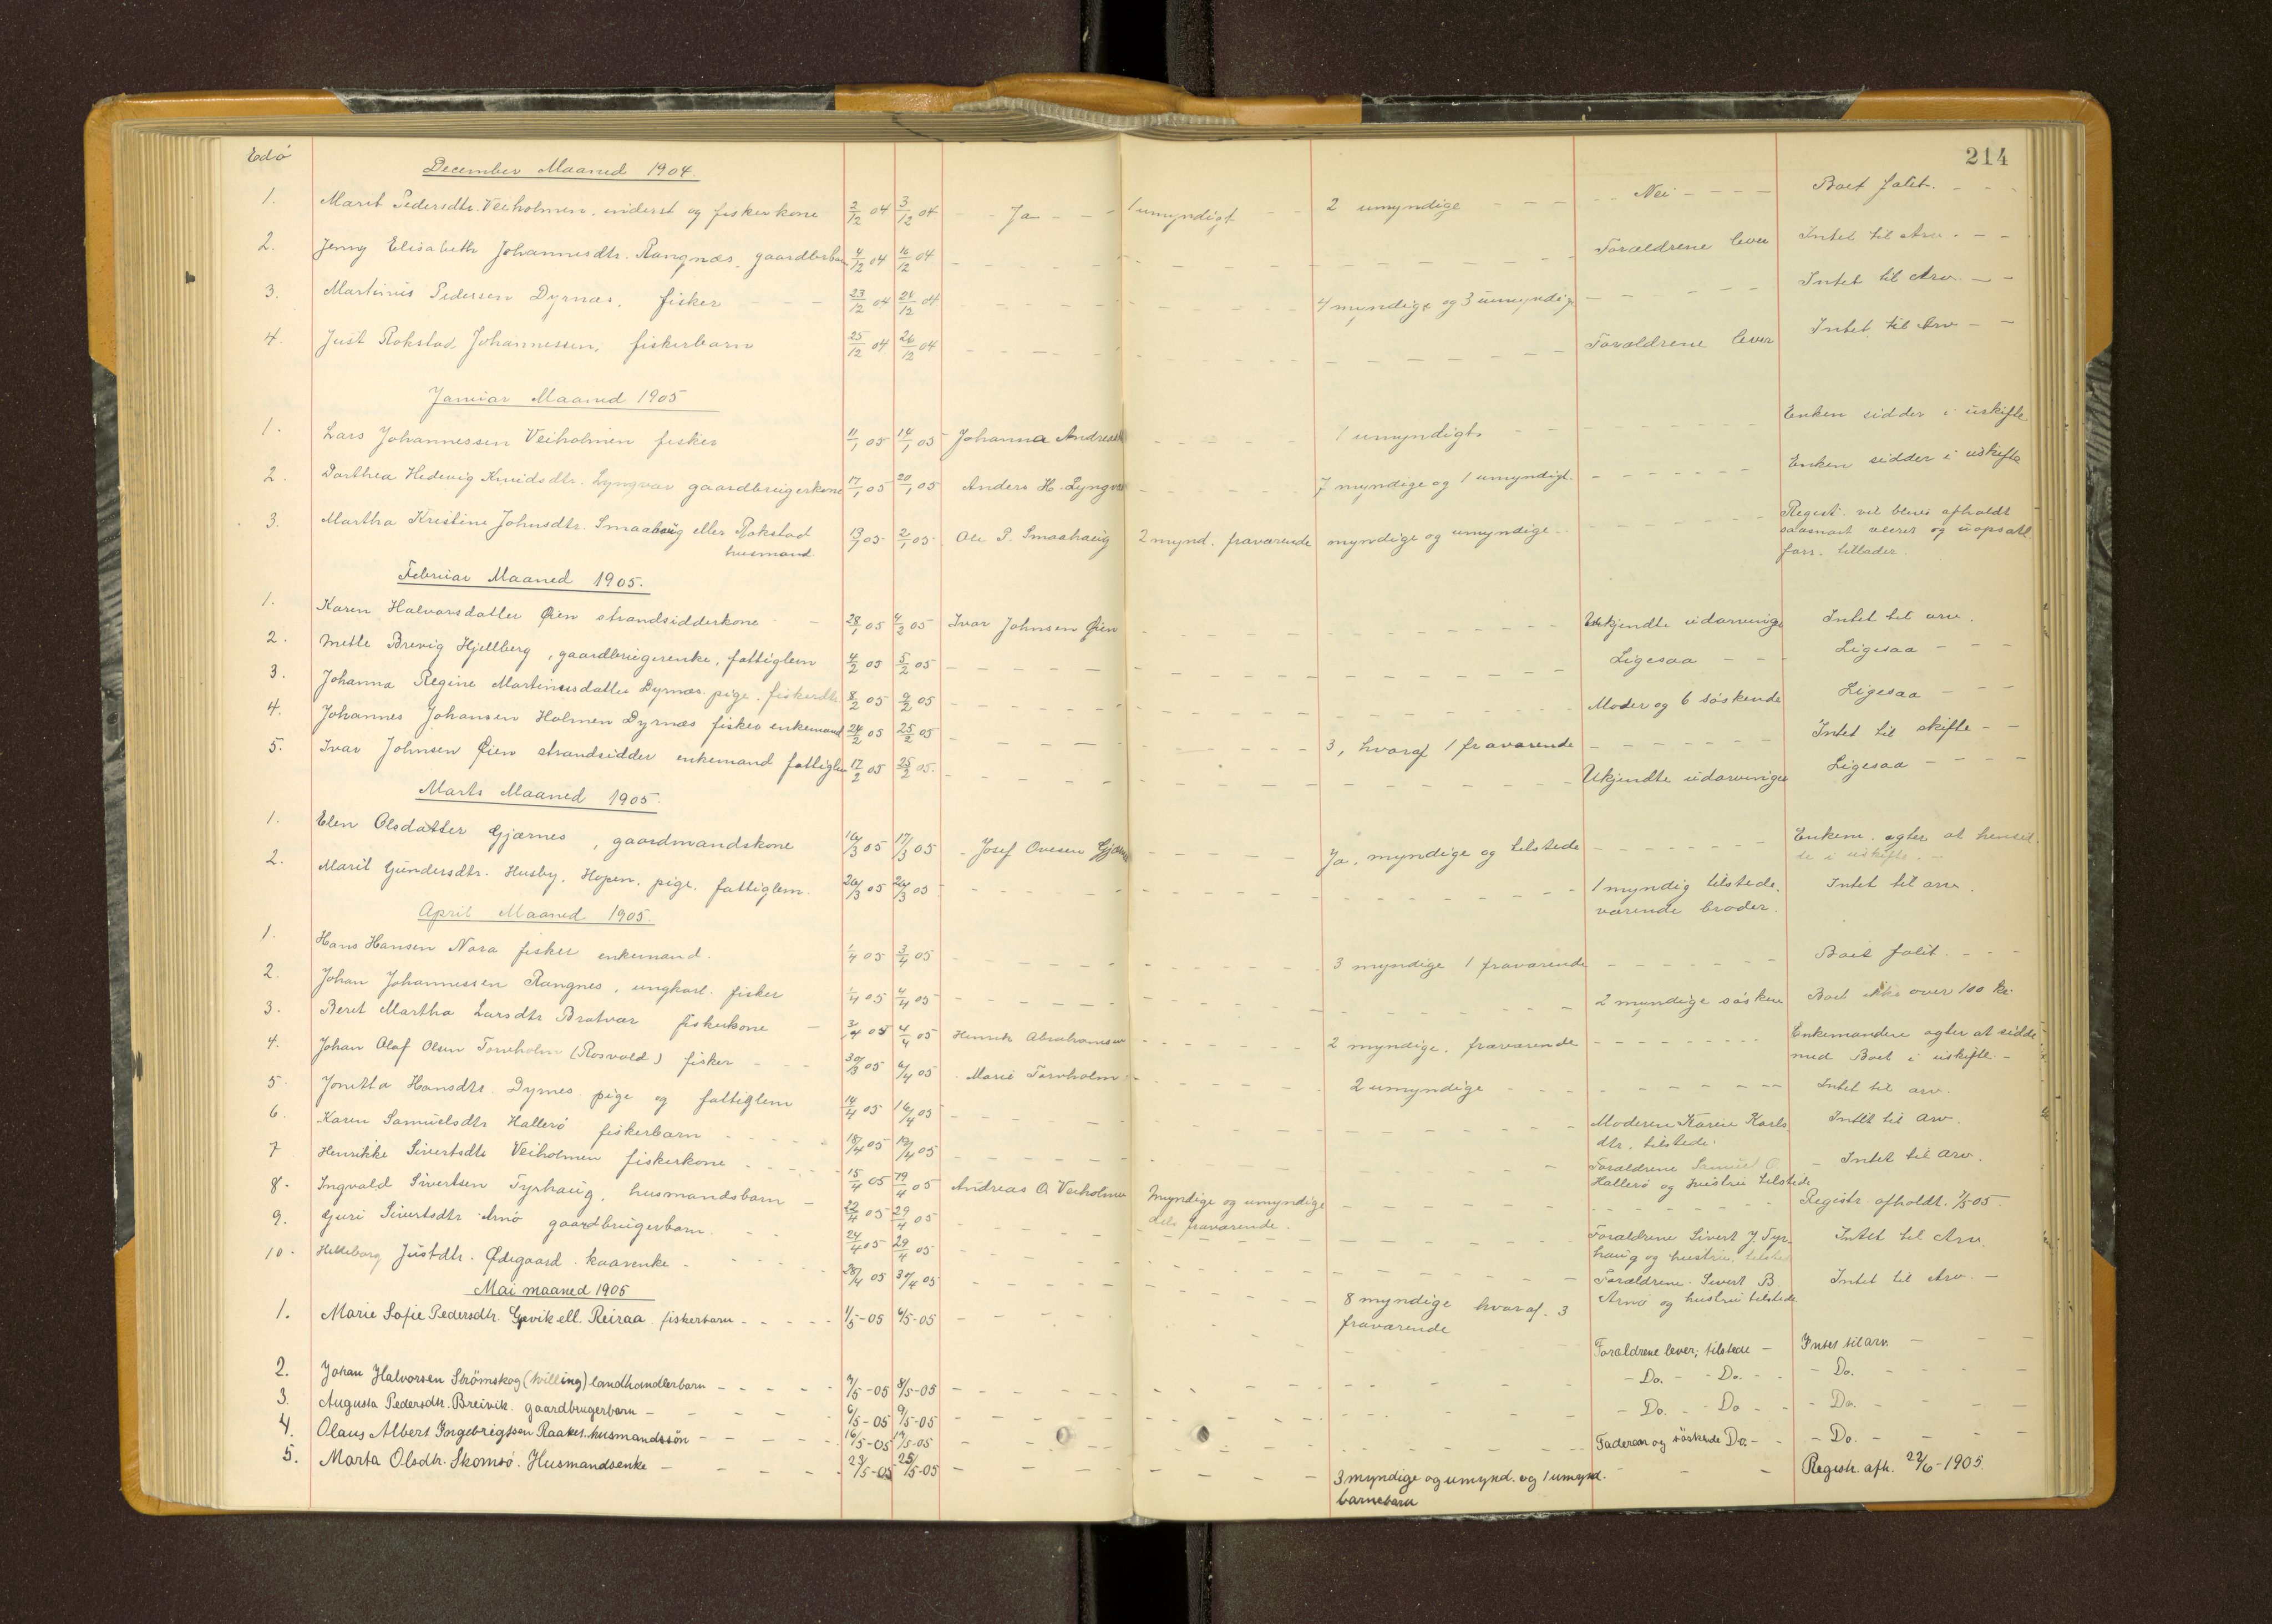 Edö
214
December Maaned 1904
1. Marit Pedersdtr. Veiholmen. inderst og fiskerkone 2/12 04 3/12 04 - - Ja - - - 1 umyndigt - - 2 umyndige - - - - - Nei - - - - Boet falit. - - -
2. Jenny Elisabeth Johannesdtr. Rangnæs gaardbrbarn 4/12 04 16/12 04 - - - Forældrene lever Intet til Arv. - -
3. Martinus Pedersen Dyrnæs, fisker - - - 23/12 04 24/12 04 - - - 4 myndige og 3 umyndige - - - Intet til Arv. - -
4. Just Rokstad Johannessen, fiskerbarn 25/12 04 26/12 04 - - - Forældrene lever Intet til Arv - -
Januar Maaned 1905
1. Lars Johannessen Veiholmen fisker 11/1 05 14/1 05 Johanna - - - 1 umyndigt. - - - Enken sidder i uskifte
2. Dorthea Hedevig Knudsdtr. Lyngvær gaardbrugerkone 17/1 05 20/1 05 Anders H. Lyngvær - - - 7 myndige og 1 umyndigt. - - - Enken sidder i uskifte
3. Martha Kristine Johnsdtr. Smaahaug eller Rokstad 05 05 Ole P. Smaahaug 2 mynd. fraværende myndige og umyndige - - - Regist. vil blive afholdt
husmand saasnart veiret og
forr. tillader.
Februar Maaned 1905.
1. Karen Halvorsdatter Øien strandsidderkone - - 28/1 05 4/2 05 Ivar Johnsen Øien - - - Ukjendte udarvinger Intet til arv.
2. Mette Brevig Hjellberg, gaardbrugerenke, fattiglem 4/2 05 5/2 05 - - - Ligesaa - - - Ligesaa - - -
3. Johanna Regine Martinusdatter Dyrnæs pige. fiskerdtr 8/2 05 9/2 05 - - - Moder og 6 söskende Ligesaa - - -
4. Johannes Johansen Holmen Dyrnæs fisker enkemand 24/2 05 25/2 05 - - - 3, hvoraf 1 fraværende - - - Intet til skifte - -
5. Ivar Johnsen Øien strandsidder enkemand fattiglem 17/2 05 25/2 05. - - - Ukjendte udarvinger Ligesaa - - -
Marts Maaned 1905.
1. Elen Olsdatter Gjærnes, gaardmandskone 16/3 05 17/3 05 - Josef Ovesen - - - Ja, myndige og tilstede - - - Enkem. agter at hensid-
de i uskifte. -
2. Marit Gundersdtr. Husby, Hopen, pige, fattiglem. 26/3 05 26/3 05 - - - 1 myndig tilstede- Intet til arv.
værende broder.
April Maaned 1905.
1. Hans Hansen Nora fisker enkemand. 1/4 05 3/4 05 - - - 3 myndige 1 fraværende - - - Boet falit. - - -
2. Johan Johannessen Rangnes, ungkarl. fisker 1/4 05 4/4 05 - - - 2 myndige søsken Boet ikke over 100 kr.
3. Beret Martha Larsdtr Bratvær fiskerkone - 3/4 05 4/4 05 Henrik Abrahamsen - - - 2 myndige, fraværende - - - Enkemanden agter at sidde
med Boet i uskifte -
4. Johan Olaf Olsen Tornholm (Rosvold) fisker - - - 30/3 05 6/4 05 Marie Tornholm - - - 2 umyndige - - - Intet til arv.
5. Jonetta Hansdtr. Dyrnes pige og fattiglem 14/4 05 16/4 05 - - - Moderen Karen Karls- Intet til arv.
dtr. tilstede.
6. Karen Samuelsdtr Hallerö fiskerbarn - - - 18/4 05 19/4 05 - - - Forældrene Samuel O. Intet til arv.
Hallerö og hustru tilstede
7 Henrikke Sivertsdtr Veiholmen fiskerkone - - - 15/4 05 19/4 05 Andreas O Veiholmen Myndige og umyndige - - - Registr. afholdt. 7/5-05
dels fraværende.
8. Ingvald Sivertsen Tyrhaug, husmandsbarn - 22/4 05 29/4 05 - - - Forældrene Sivert J. Tyr- Intet til Arv.
haug og hustru, tilsted
9. Guri Sivertsdtr Arnö gaardbrugerbarn. - - 24/4 05 29/4 05 - - - Forældrene. Sivert B. Intet til Arv. -
Arnö og hustru tilstede
10. Justdtr. Ødegaard kaarenke - - - 28/4 05 30/4 05 - - - 8 myndige hvoraf 3
fraværende
Mai maaned 1905
1. Marie Sofie Pedersdtr. Gjevik ell. Reiraa fiskerbarn - - - 1/5-05 6/5-05 - - - Forældrene lever; tilstede - Intet til arv. - - -
2. Johan Halvorsen Strömskag (tvilling) landhandlerbarn - - - 7/5-05 8/5-05 - - - - Do. - - Do. - - - Do. - - -
3. Augusta Pedersdtr. Breivik gaardbrugerbarn - - - 6/5-05 9/5-05 - - - - Do. - - Do - - - Do. - - -
4. Olaus Albert Ingebrigtsen Raaket. husmandssön - - - 16/5-05 19/5-05 - - - Faderen og söskende Do. - - Do. - - -
5. Marta Olsdtr. Skomsö. Husmandsenke - - - 23/5-05 25/5-05 - - - 3 myndige og umynd. og 1 umynd. - - - Registr. afh. 22/6-1905.
barnebarn